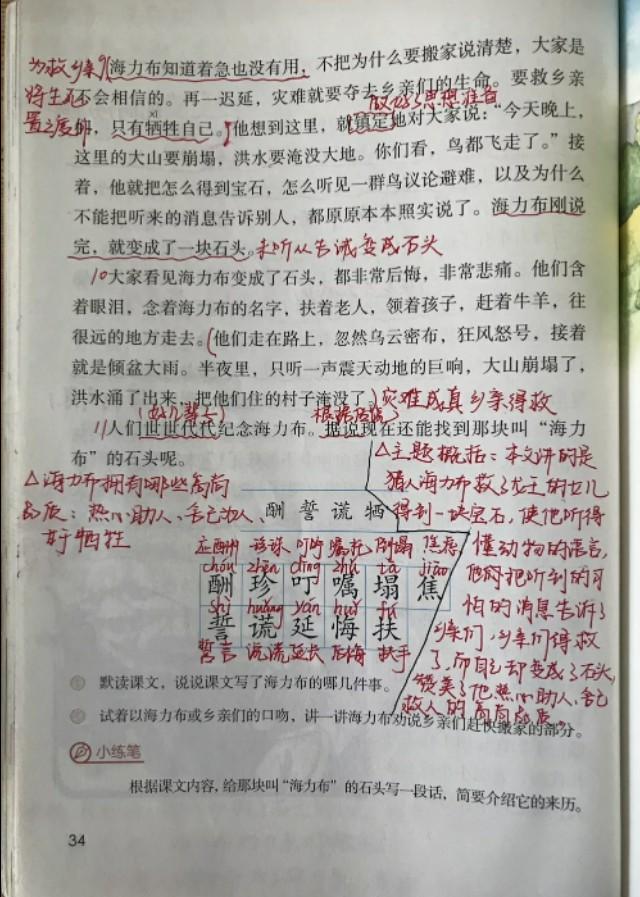 为救乡亲
将生死
置之度外
海力布知道着急也没有用，不把为什么要搬家说清楚，大家是
不会相信的。再一迟延，灾难就要夺去乡亲们的生命。要救乡亲
做好了思想准备
们，只有牺牲自己。他想到这里，就镇定地对大家说：“今天晚上，
xī
这里的大山要崩塌，洪水要淹没大地。你们看，鸟都飞走了。”接
着，他就把怎么得到宝石，怎么听见一群鸟议论避难，以及为什么
不能把听来的消息告诉别人，都原原本本照实说了。海力布刚说
完，就变成了一块石头。未听从告诫变成石头
10大家看见海力布变成了石头，都非常后悔，非常悲痛。他们含
着眼泪，念着海力布的名字，扶着老人，领着孩子，赶着牛羊，往
很远的地方走去。（他们走在路上，忽然乌云密布，狂风怒号，接着
就是倾盆大雨。半夜里，只听一声震天动地的巨响，大山崩塌了，
洪水涌了出来，把他们住的村子淹没了。）灾难成真乡亲得救
11人们世世代代纪念海力布。据说现在还能找到那块叫“海力
布”的石头呢。
△海力布拥有哪些高尚
品质：热心助人、舍己为人、
于牺牲
酬 誓 谎 牺
应酬 珍珠 叮咛 嘱托 倒塌 焦急
chóu zhēn dīng zhǔ tā jiāo
酬 珍 叮 嘱 塌 焦
shì huǎng yán huǐ fú
誓 谎 延 悔 扶
誓言 说谎 延长 后悔 扶手
△主题概括：本文讲的是
猎人海力布救了龙王的女儿
得到一块宝石，使他听得
懂动物的语言，
他因把听到的可
怕的消息告诉了
乡亲们，乡亲们得救
了，而自己却变成了石头，
赞美了他热心助人、舍己
救人的高尚品质。
默读课文，说说课文写了海力布的哪几件事。
试着以海力布或乡亲们的口吻，讲一讲海力布劝说乡亲们赶快搬家的部分。
小练笔
根据课文内容，给那块叫“海力布”的石头写一段话，简要介绍它的来历。
34